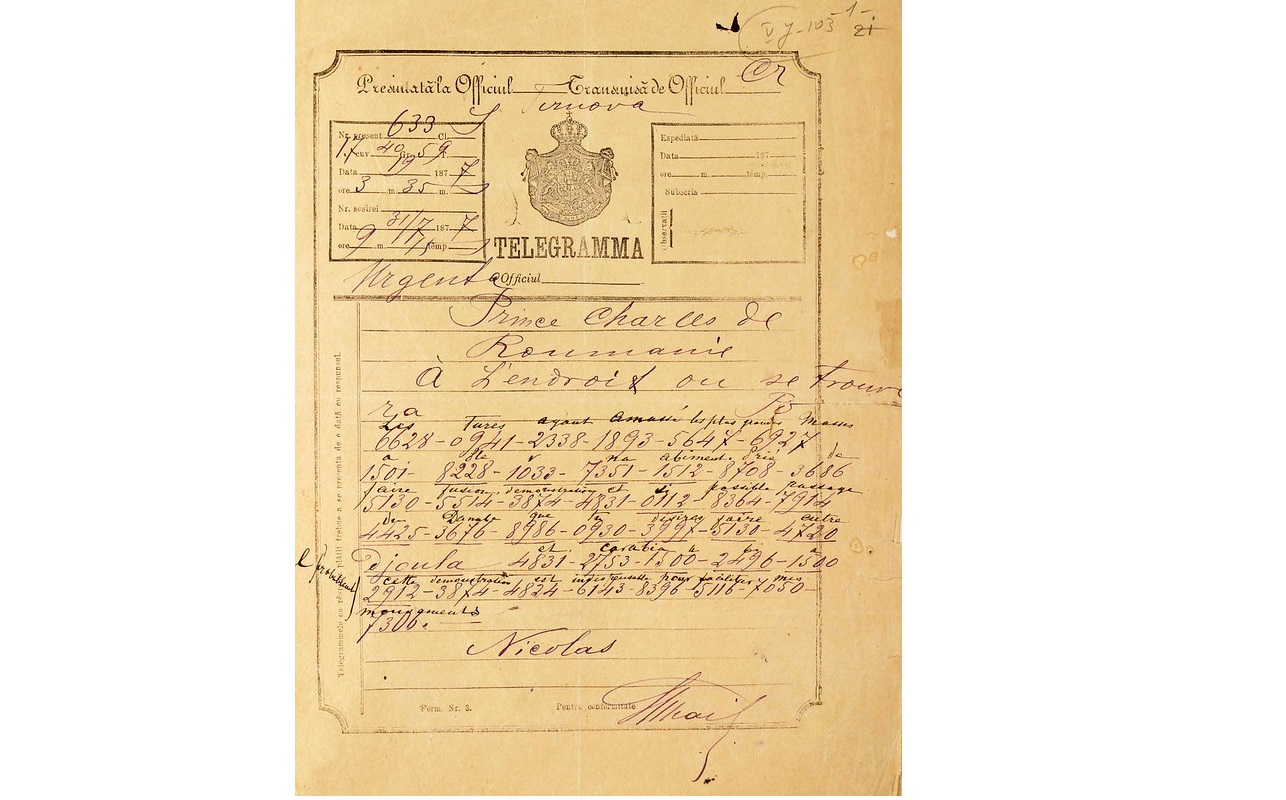 V J-103
Presintată la Officiul Transmisă de Officiul
Turnova
Nr. present. 633 Cl.
17 cuv 40 gr. 59
Data 187 7
ore 3 m 35 m.
Nr. sosirei
Data 31/7 187 7
ore 9 m. témp
Espediată
Data 187
ore m. témp.
Subscris
Observații
TELEGRAMMA
Urgenta Officiul
Prince Charles de
Roumanie
À L'endroit ou se trouve
ra
Les Turcs ayant amassé les plus grandes Masses
6628-0941-2338-1893-5647-6927
a de
1501-8228-1033-7351-1512-8708-3686
faire fusion, demonstration et si possible passage
5130-5514-3874-4831-0112-8364-7914
de Danube que tu désirais faire entre
4425-3676-8986-0930-3997-5130-4720
et Corabia
Djcula 4831-2753-1500-2496-1500
cette demonstration est indispensable pour faciliter mes
2912-3874-4824-6143-8396-5116-7050-
mouvements
7306.
Nicolas
Telegrammele cu răspuns plătit trebue a se presenta de o dată cu responsul.
Form. Nr. 3. Pentru conformitate